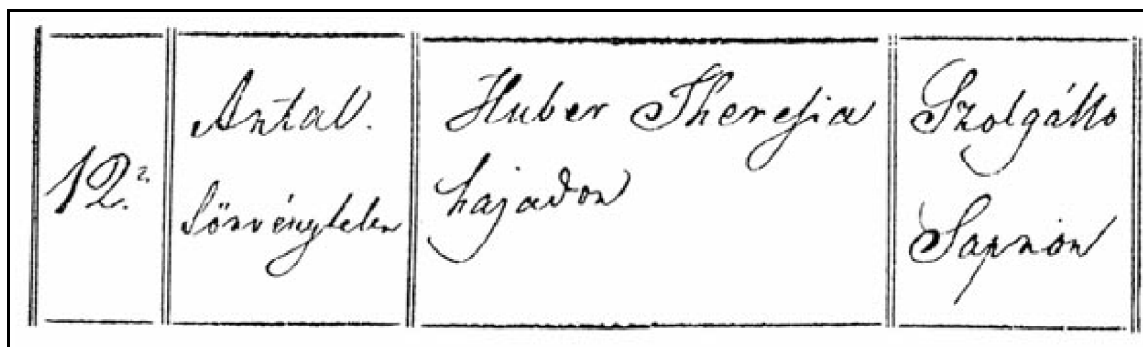 12.
Antal.
törvénytelen
Huber Theresia
hajadon
Szolgálló
Sapron